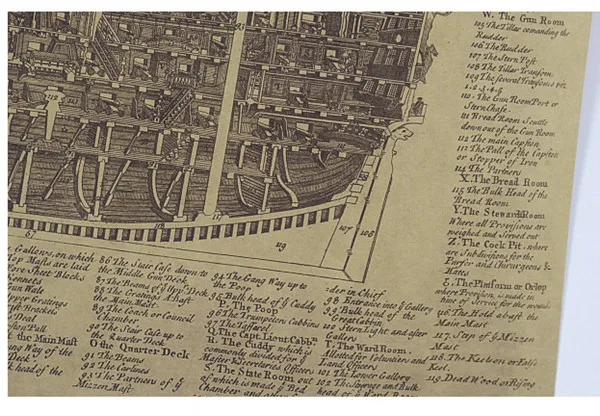 112
117
118
67
119
107
108
Gallows, on which
Top Masts are laid
Fore Sheet Blocks
Kennets
Gun Wads
Upper Gratings
Dead
the Main Mast
Gang Way of the
Deck
Bulk head of the
86 The Stair Case down to
the Middle Gun Deck
87 The Beams of ye Upr. Deck
88 The Gratings Abaft
the Main Mast
89 The Coach or Council
Chamber
90 The Stair Case up to
ye Quarter Deck
O the Quarter Deck
91 The Beams
92 The Carlines
93 The Partners of ye
Mizzen Mast
94 The Gang Way up to
the Poop
95 Bulk head of ye Cuddy
P. The Poop
96 The Trumpeters Cabbins
97 The Taffarel
Q. The Capt. Lieut. Cabbn
R. The Cuddy, which is
commonly divided for ye
Master & Secretaries Officers
S. The State Room out
of which is made ye Bed
Chamber and other
der in Chief
98 Entrance into ye Gallery
99 Bulk head of the
Great Cabbin
110 Stern Light and after
Gallery
T. The Ward Room.
Allotted for Voluntiers and
Land Officers
101 The Lower Gallery
102 The Steerage and Bulk
head of ye Ward Room
W. The Gun Room
105 The Tillar comanding the
Rudder
106 The Rudder
107 The Stern Post
108 The Tillar Transom
109 The several Transoms viz.
1. 2. 3. 4. 5
110. The Gun Room Port or
Stern Chase
111 Bread Room Scuttle
down out of the Gun Room
112 The main Capston
113 The Pall of the Capston
or Stopper of Iron
114 The Partners
X. The Bread Room
115 The Bulk Head of the
Bread Room
Y. The Steward Room
Where all Provisions are
weighed and Served out
Z. The Cock Pit, where
are Subdivisions for the
Purser and Chirurgeons &
Mates
&. The Platform or Orlop
where Provision is made in
time of Service for the wounded
116 The Hold abaft the
Main Mast
117. Step of ye Mizzen
Mast
118. The Keelson or False
Keel.
119. Dead Wood or Rising